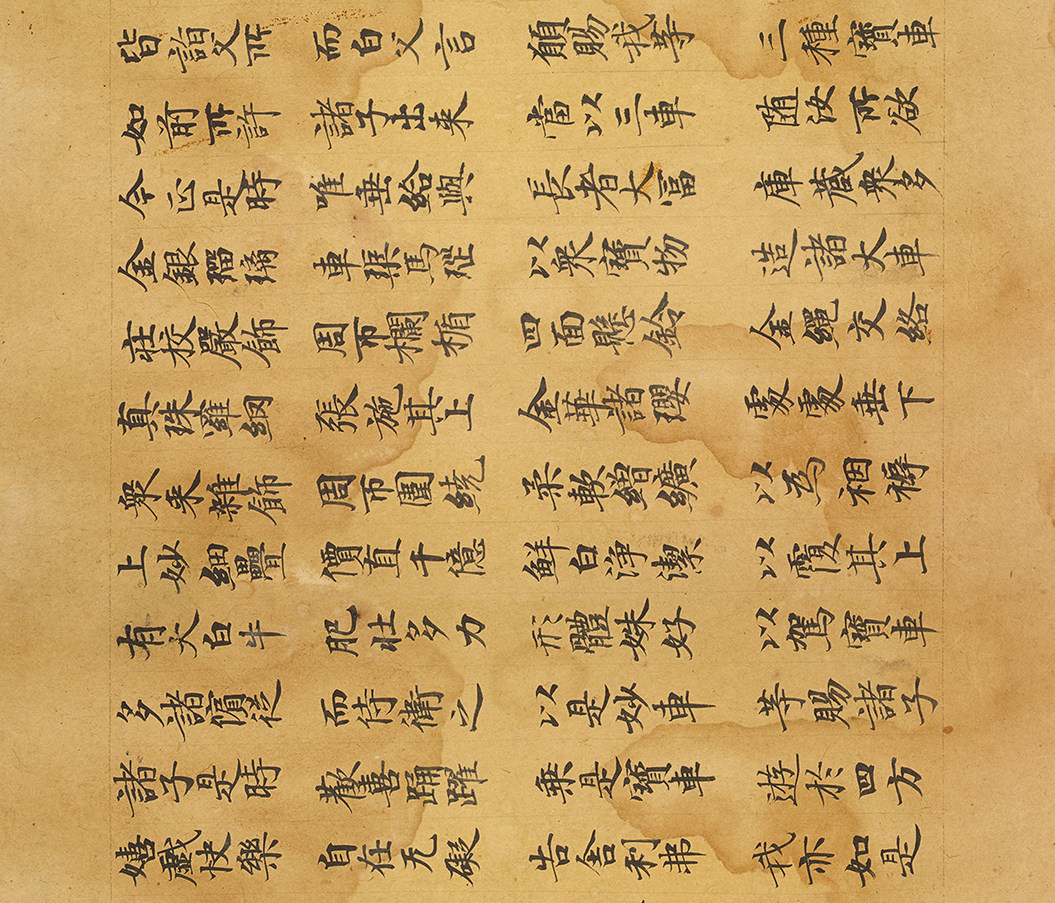 皆詣父所 而白父言 願賜我等 三種寶車
如前所許 諸子出来 當以三車 随汝所欲
今正是時 唯垂給與 長者大冨 庫蔵衆多
金銀瑠璃 車璖馬瑙 以衆寶物 造諸大車
莊校嚴飾 周帀欄楯 四面懸鈴 金繩交絡
真珠羅網 張施其上 金華諸瓔 處處垂下
衆采雜飾 周帀圍繞 柔軟繒纊 以為裀褥
上妙細疊 價直千億 鮮白淨潔 以覆其上
有大白牛 肥壮多力 形體姝好 以駕寶車
多諸儐從 而侍衛之 以是妙車 等賜諸子
諸子是時 歡喜踊躍 乗是寶車 遊於四方
嬉戲快樂 自在无礙 告舍利弗 我亦如是